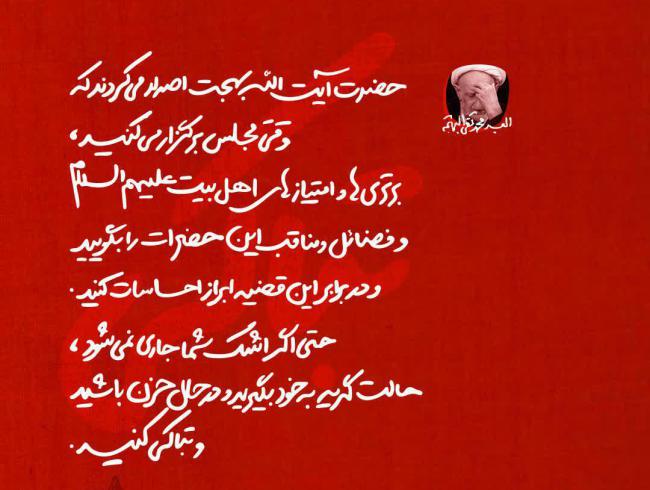 حضرت آیت الله بهجت اصرار می‌کردند که
وقتی مجلس برگزار می‌کنید،
برتری‌ها و امتیازهای اهل بیت علیهم السلام
و فضائل و مناقب این حضرات را بگویید
و در برابر این قضیه ابراز احساسات کنید.
حتی اگر اشک شما جاری نمی‌شود،
حالت گریه به خود بگیرید و در حال حزن باشید
و تباکی کنید.
العبد محمدتقی البهجة